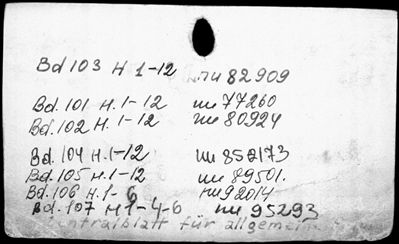 Bd 103 H 1-12 пи 82909
Bd. 101 H. 1-12 пи 77260
Bd. 102 H. 1-12 пи 80924
Bd. 104 H. 1-12 пи 852173
Bd. 105 H. 1-12 пи 89501.
Bd. 106 H. 1-6 пи 92014
Bd. 107 H 1-4-6 пи 95293
Zentralblatt für allgemein